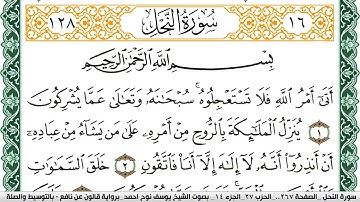 ١٢٨ سُورَةُ النَّحْلِ ١٦
بِسْمِ اللَّهِ الرَّحْمَٰنِ الرَّحِيمِ
أَتَىٰٓ أَمْرُ اللَّهِ فَلَا تَسْتَعْجِلُوهُ سُبْحَٰنَهُۥ وَتَعَٰلَىٰ عَمَّا يُشْرِكُونَ
١ يُنَزِّلُ الْمَلَٰٓئِكَةَ بِالرُّوحِ مِنْ أَمْرِهِۦ عَلَىٰ مَنْ يَشَآءُ مِنْ عِبَادِهِۦٓ
أَنْ أَنذِرُوٓا۟ أَنَّهُۥ لَآ إِلَٰهَ إِلَّآ أَنَا فَاتَّقُونِ ٢ خَلَقَ السَّمَٰوَٰتِ
سورة النحل _ الصفحة ٢٦٧_ الحزب ٢٧_ الجزء ١٤ _ بصوت الشيخ يوسف نوح احمد _ برواية قالون عن نافع - بالتوسيط والصلة